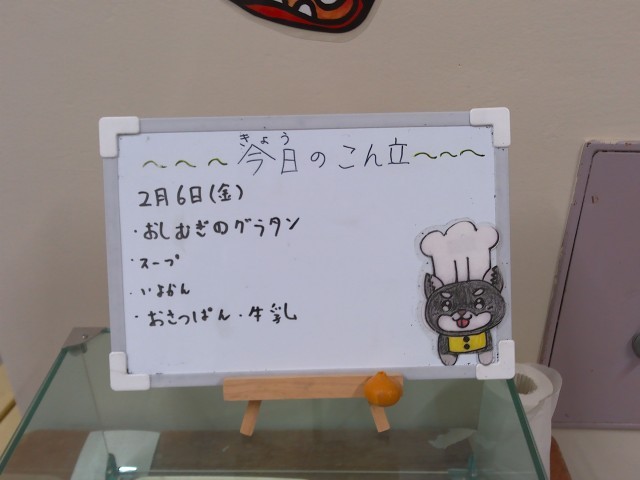 きょう
～～～今日のこん立～～～
2月6日(金)
・おしむぎのグラタン
・スープ
・いよかん
・おさつぱん・牛乳